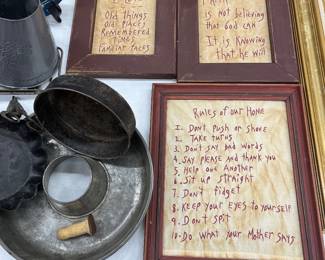 Old things
Old places
Remembered
Times
Familiar faces
is not believing
that God can
It is knowing
that he will
Rules of our Home
1. Don't push or shove
2. Take turns
3. Don't say bad words
4. Say please and thank you
5. Help one another
6. Sit up straight
7. Don't fidget
8. Keep your eyes to yourself
9. Don't spit
10. Do what your Mother says